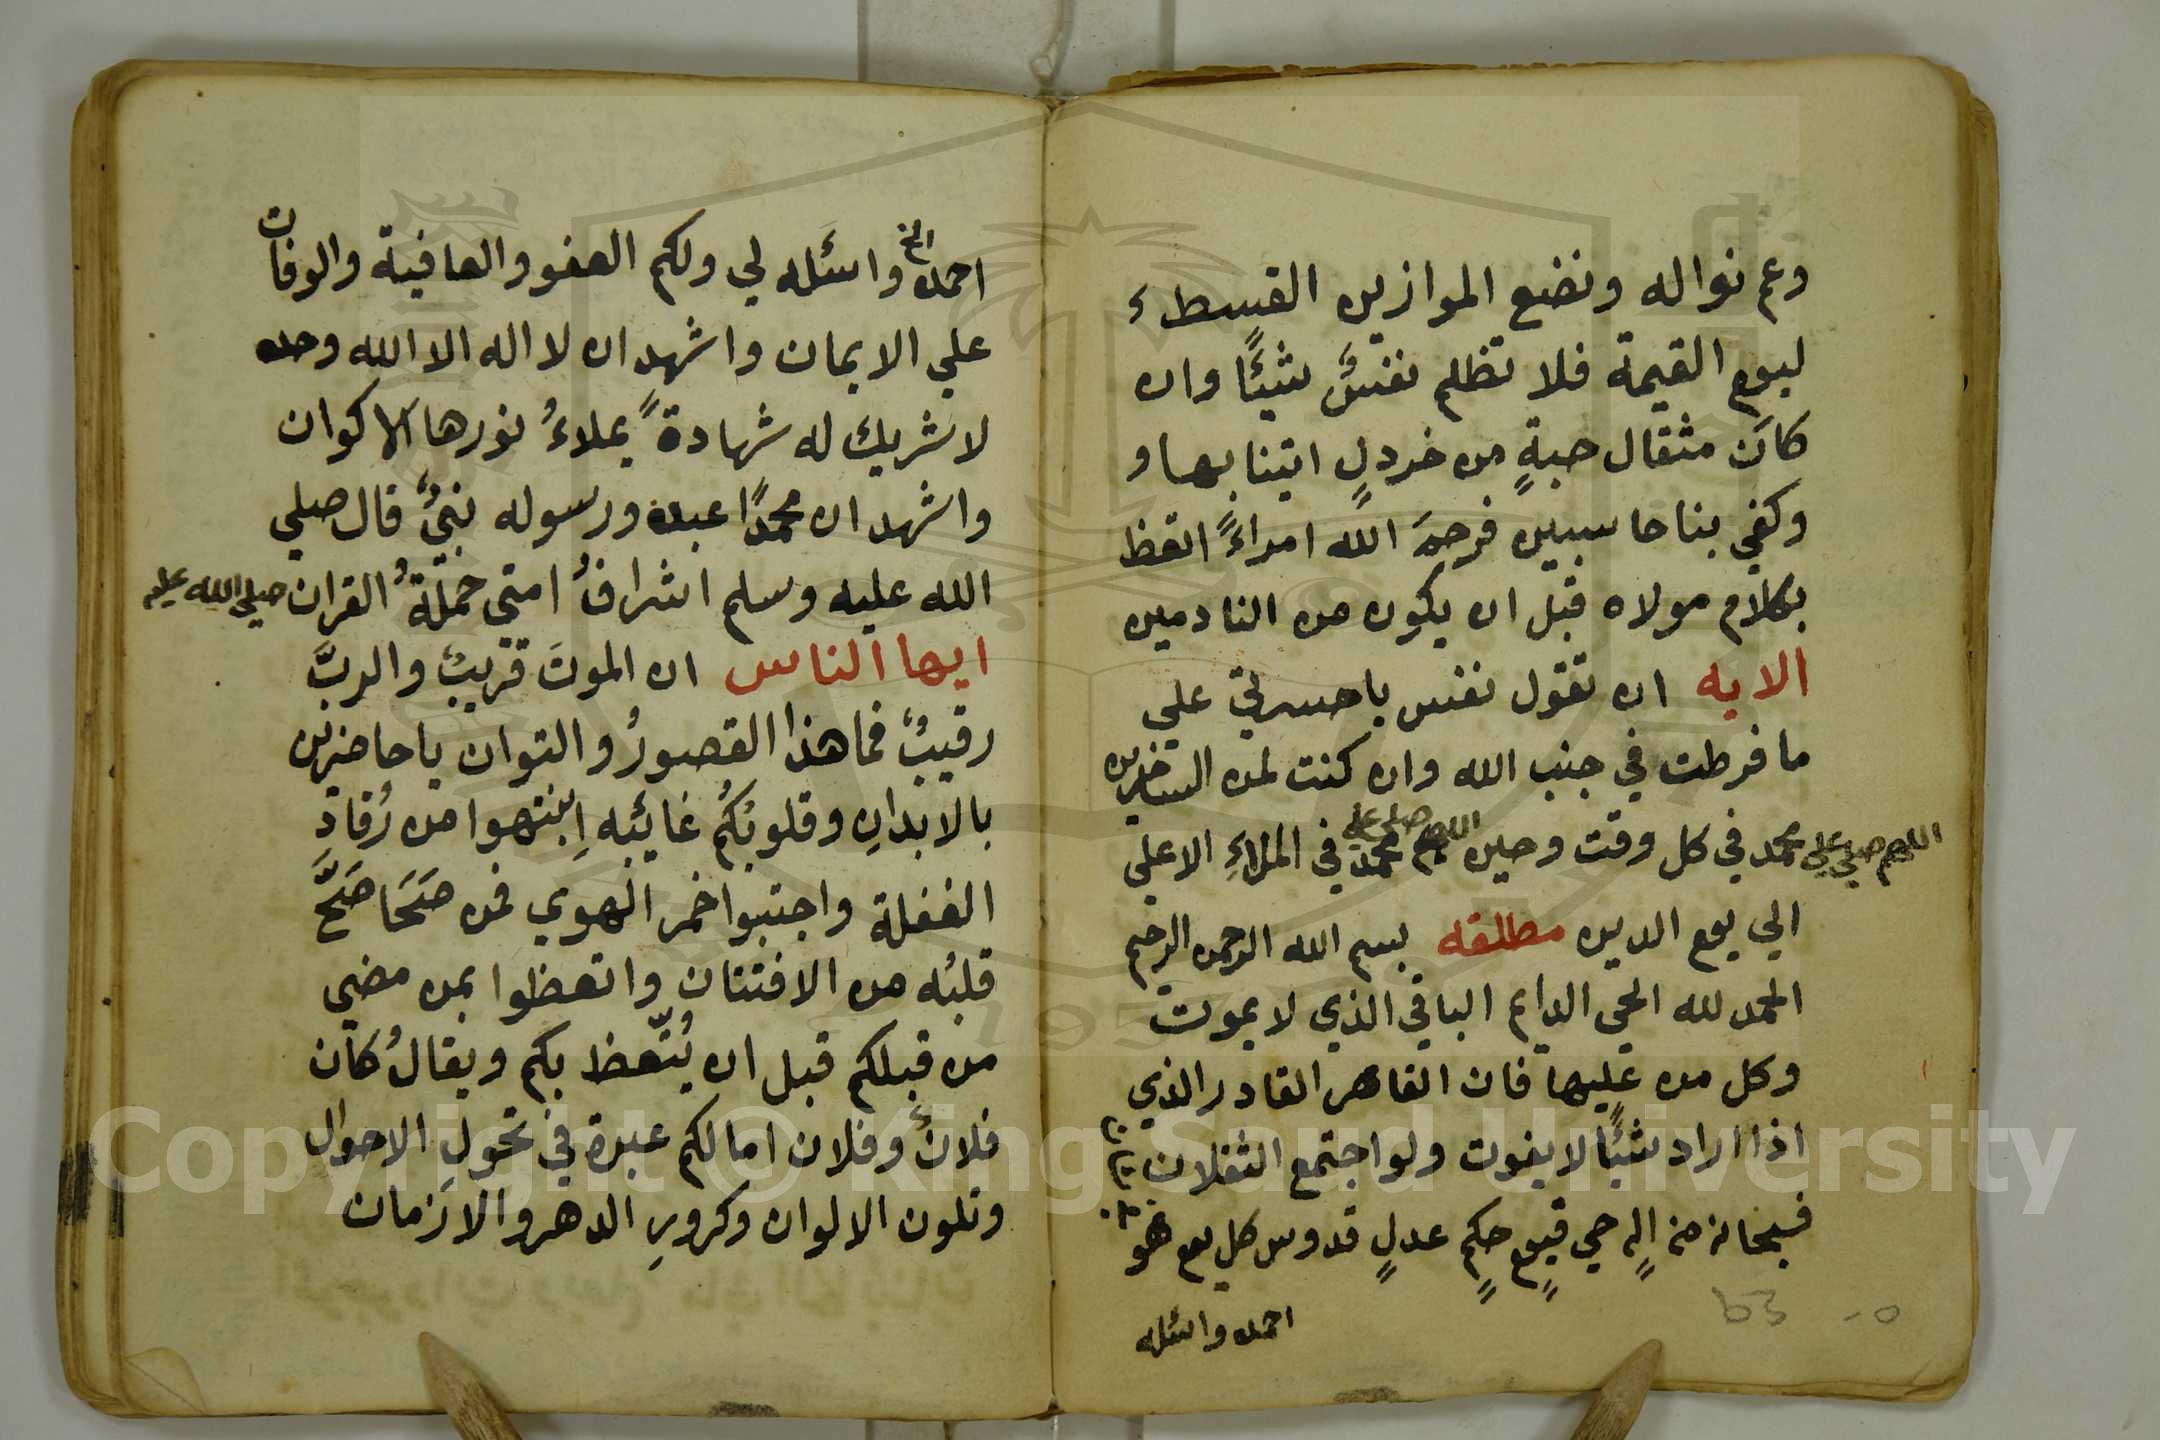 وعم نواله ونضع الموازين القسط
ليوم القيمة فلا تظلم نفسٌ شيئًا وان
كانَ مثقال حبةٍ من خردلٍ اتينا بها و
وكفي بنا حاسبين فرحمَ اللّه امراءً اتعظ
بكلام مولاه قبل ان يكون من النادمين
الايه ان تقول نفس ياحسرتي علي
ما فرطت في جنب الله وان كنت لمن الساخرين
اللهم صلي علي محمد في كل وقت وحين اللهم صلي علي محمد في الملاءِ الاعلي
الي يوم الدين مطلقه بسم الله الرحمن الرحيم
الحمد لله الحي الدايم الباقي الذي لا يموت
وكل من عليها فان القاهر القادر الذي
اذا اراد شيئًا لا يفوت ولو اجتمع الثقلان
فسبحانه من الهٍ حي قيومٍ حكمٍ عدلٍ قدوس كل يوم هو
احمده واسئله
53
احمده الخ واسئَله لي ولكم العفو والعافية والوفات
علي الايمان واشهد ان لا اله الا الله وحده
لا شريك له شهادةً يملاءُ نورها الاكوان
واشهد ان محمدًا عبده ورسوله نبيٌ قال صلي
الله عليه وسلم اشرافُ امتي حملةُ القران صلي الله عليه
ايها الناس ان الموتَ قريبٌ والربَّ
رقيبٌ فما هذا القصورُ والتوان ياحاضرين
بالابدانِ وقلوبُكُم غايئبه اِنتبهوا من رُقادِ
الغفلة واجتبوا خمر الهوي فمن صَحَا صَحَّ
قلبُه من الافتتان واتعظوا بمن مضي
من قبلكم قبل ان يُتَّعظ بكم ويقالُ كان
فلانٌ وفلان امالكم عبرة في تحولِ الاحوال
وتلون الالوان وكرورِ الدهر والازمان
Copyright © King Saud University
1957